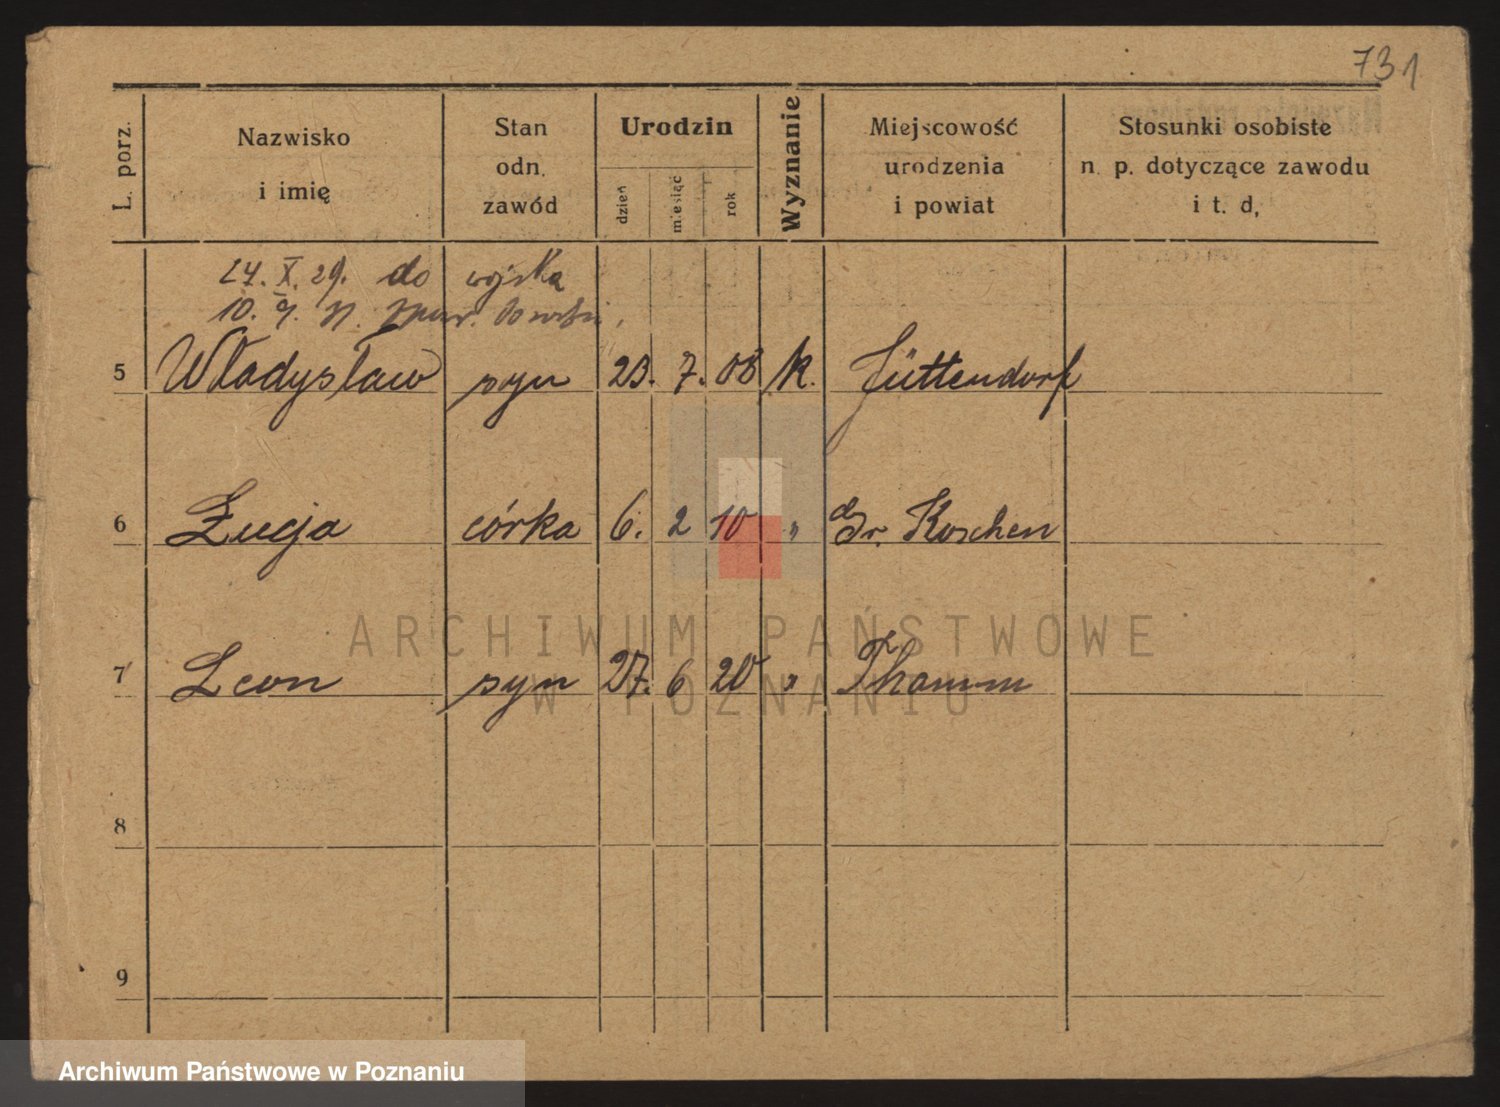 731
L. porz.
Nazwisko i imię
Stan odn. zawód
Urodzin
dzień
miesiąc
rok
Wyznanie
Miejscowość urodzenia i powiat
Stosunki osobiste n. p. dotyczące zawodu i t. d,
24. X. 29. do wojska
10.
5 Władysław syn 23. 7. 08 k. Jüttendorf
6 Łucja córka 6. 2 10 " Gr. Koschen
7 Leon syn 27. 6 20 " Thamm
8
9
ARCHIWUM PAŃSTWOWE
W POZNANIU
Archiwum Państwowe w Poznaniu